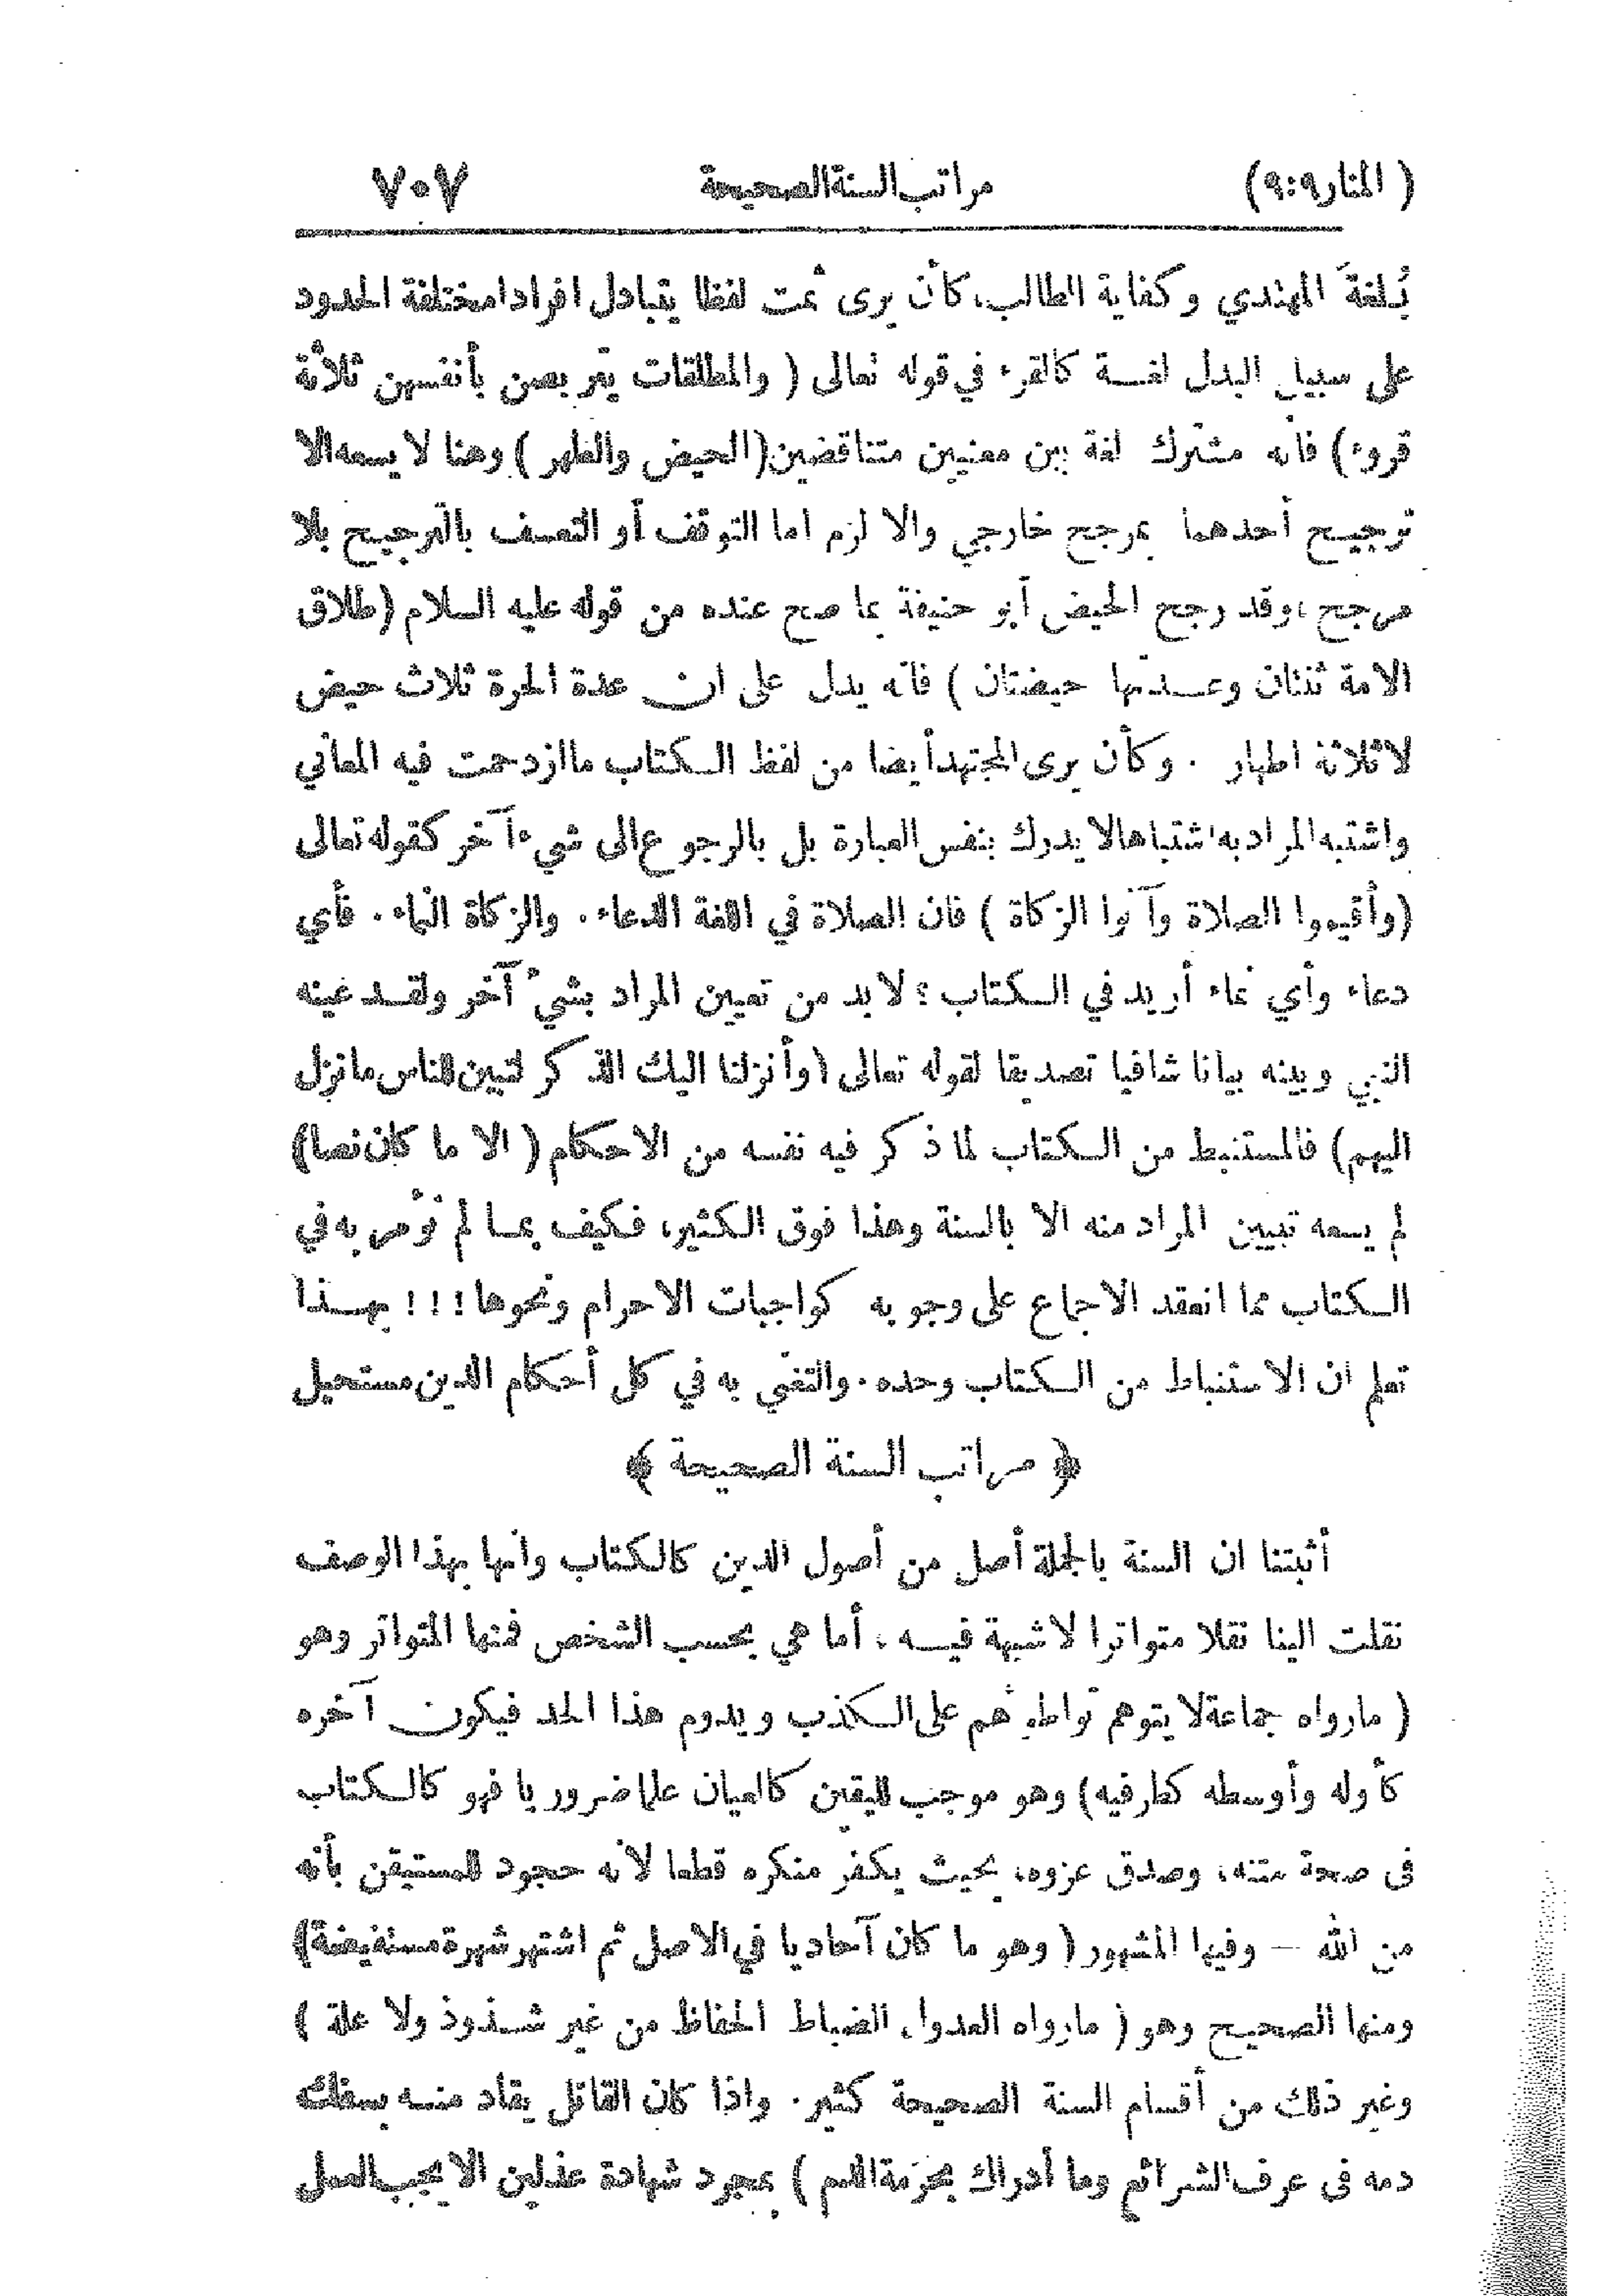 ( المنار ٩:٩) مراتب السنة الصحيحة ٧٠٧
بُلغةَ المهتدي وكفاية الطالب، كأن يرى ثمت لفظا يتبادل افرادا مختلفة الحدود
على سبيل البدل لغة كالقرء في قوله تعالى ( والمطلقات يتربصن بأنفسهن ثلاثة
قروء) فانه مشترك لغة بين معنيين متناقضين (الحيض والطهر) وهنا لا يسعه الا
ترجيح أحدهما بمرجح خارجي والا لزم اما التوقف أو التعسف بالترجيح بلا
مرجح، وقد رجح الحيض أبو حنيفة بما صح عنده من قوله عليه السلام (طلاق
الامة ثنتان وعدتها حيضتان ) فانه يدل على ان عدة الحرة ثلاث حيض
لاثلاثة اطهار . وكأن يرى المجتهد أيضا من لفظ الكتاب ما ازدحمت فيه المعاني
واشتبه المراد به اشتباها لا يدرك بنفس العبارة بل بالرجوع الى شيء آخر كقوله تعالى
(وأقيموا الصلاة وآتوا الزكاة ) فان الصلاة في اللغة الدعاء . والزكاة النماء . فأي
دعاء وأي نماء أريد في الكتاب ؟ لا بد من تعيين المراد بشيء آخر ولقد عينه
النبي وبينه بيانا شافيا تصديقا لقوله تعالى (وأنزلنا اليك الذكر لتبين للناس ما نزل
اليهم) فالمستنبط من الكتاب لما ذكر فيه نفسه من الاحكام ( الا ما كان نصا)
لم يسعه تبيين المراد منه الا بالسنة وهذا فوق الكثير، فكيف بما لم نؤمر به في
الكتاب مما انعقد الاجماع على وجوبه كواجبات الاحرام ونحوها ! ! ! بهذا
تعلم ان الاستنباط من الكتاب وحده . والتغني به في كل أحكام الدين مستحيل
﴿ مراتب السنة الصحيحة ﴾
أثبتنا ان السنة بالجملة أصل من أصول الدين كالكتاب وانها بهذا الوصف
نقلت الينا نقلا متواترا لا شبهة فيه ، أما هي بحسب الشخص فمنها المتواتر وهو
( مارواه جماعة لا يتوهم تواطؤهم على الكذب ويدوم هذا الحد فيكون آخره
كأوله وأوسطه كطرفيه) وهو موجب لليقين كالعيان علما ضروريا فهو كالكتاب
في صحة متنه، وصدق عزوه، بحيث يكفر منكره قطعا لانه حجود للمستيقن بأنه
من الله — وفيها المشهور ( وهو ما كان آحاديا في الاصل ثم اشتهر شهرة مستفيضة)
ومنها الصحيح وهو ( مارواه العدول الضباط الحفاظ من غير شذوذ ولا علة )
وغير ذلك من أقسام السنة الصحيحة كثير . واذا كان القاتل يقاد منه بسفك
دمه في عرف الشرائع وما أدراك بحرمة الدم ) بمجرد شهادة عدلين الا يجب العمل